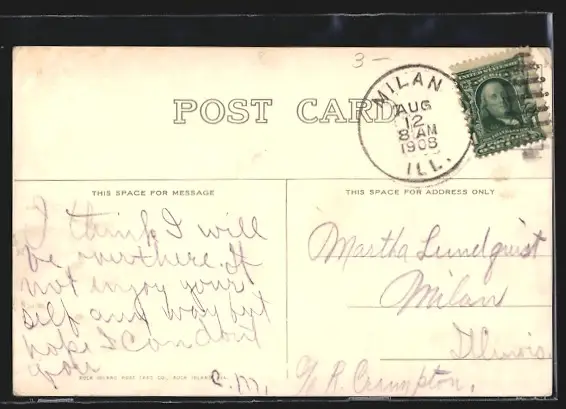 3-
POST CARD
MILAN
AUG
12
8 AM
1908
ILL.
THIS SPACE FOR MESSAGE
THIS SPACE FOR ADDRESS ONLY
I think I will
be over there. If
not enjoy your
self any way but
hope I can
you
C.M.
Martha Lundquist
Milan
Illinois.
c/o R. Crampton.
ROCK ISLAND POST CARD CO., ROCK ISLAND, ILL.